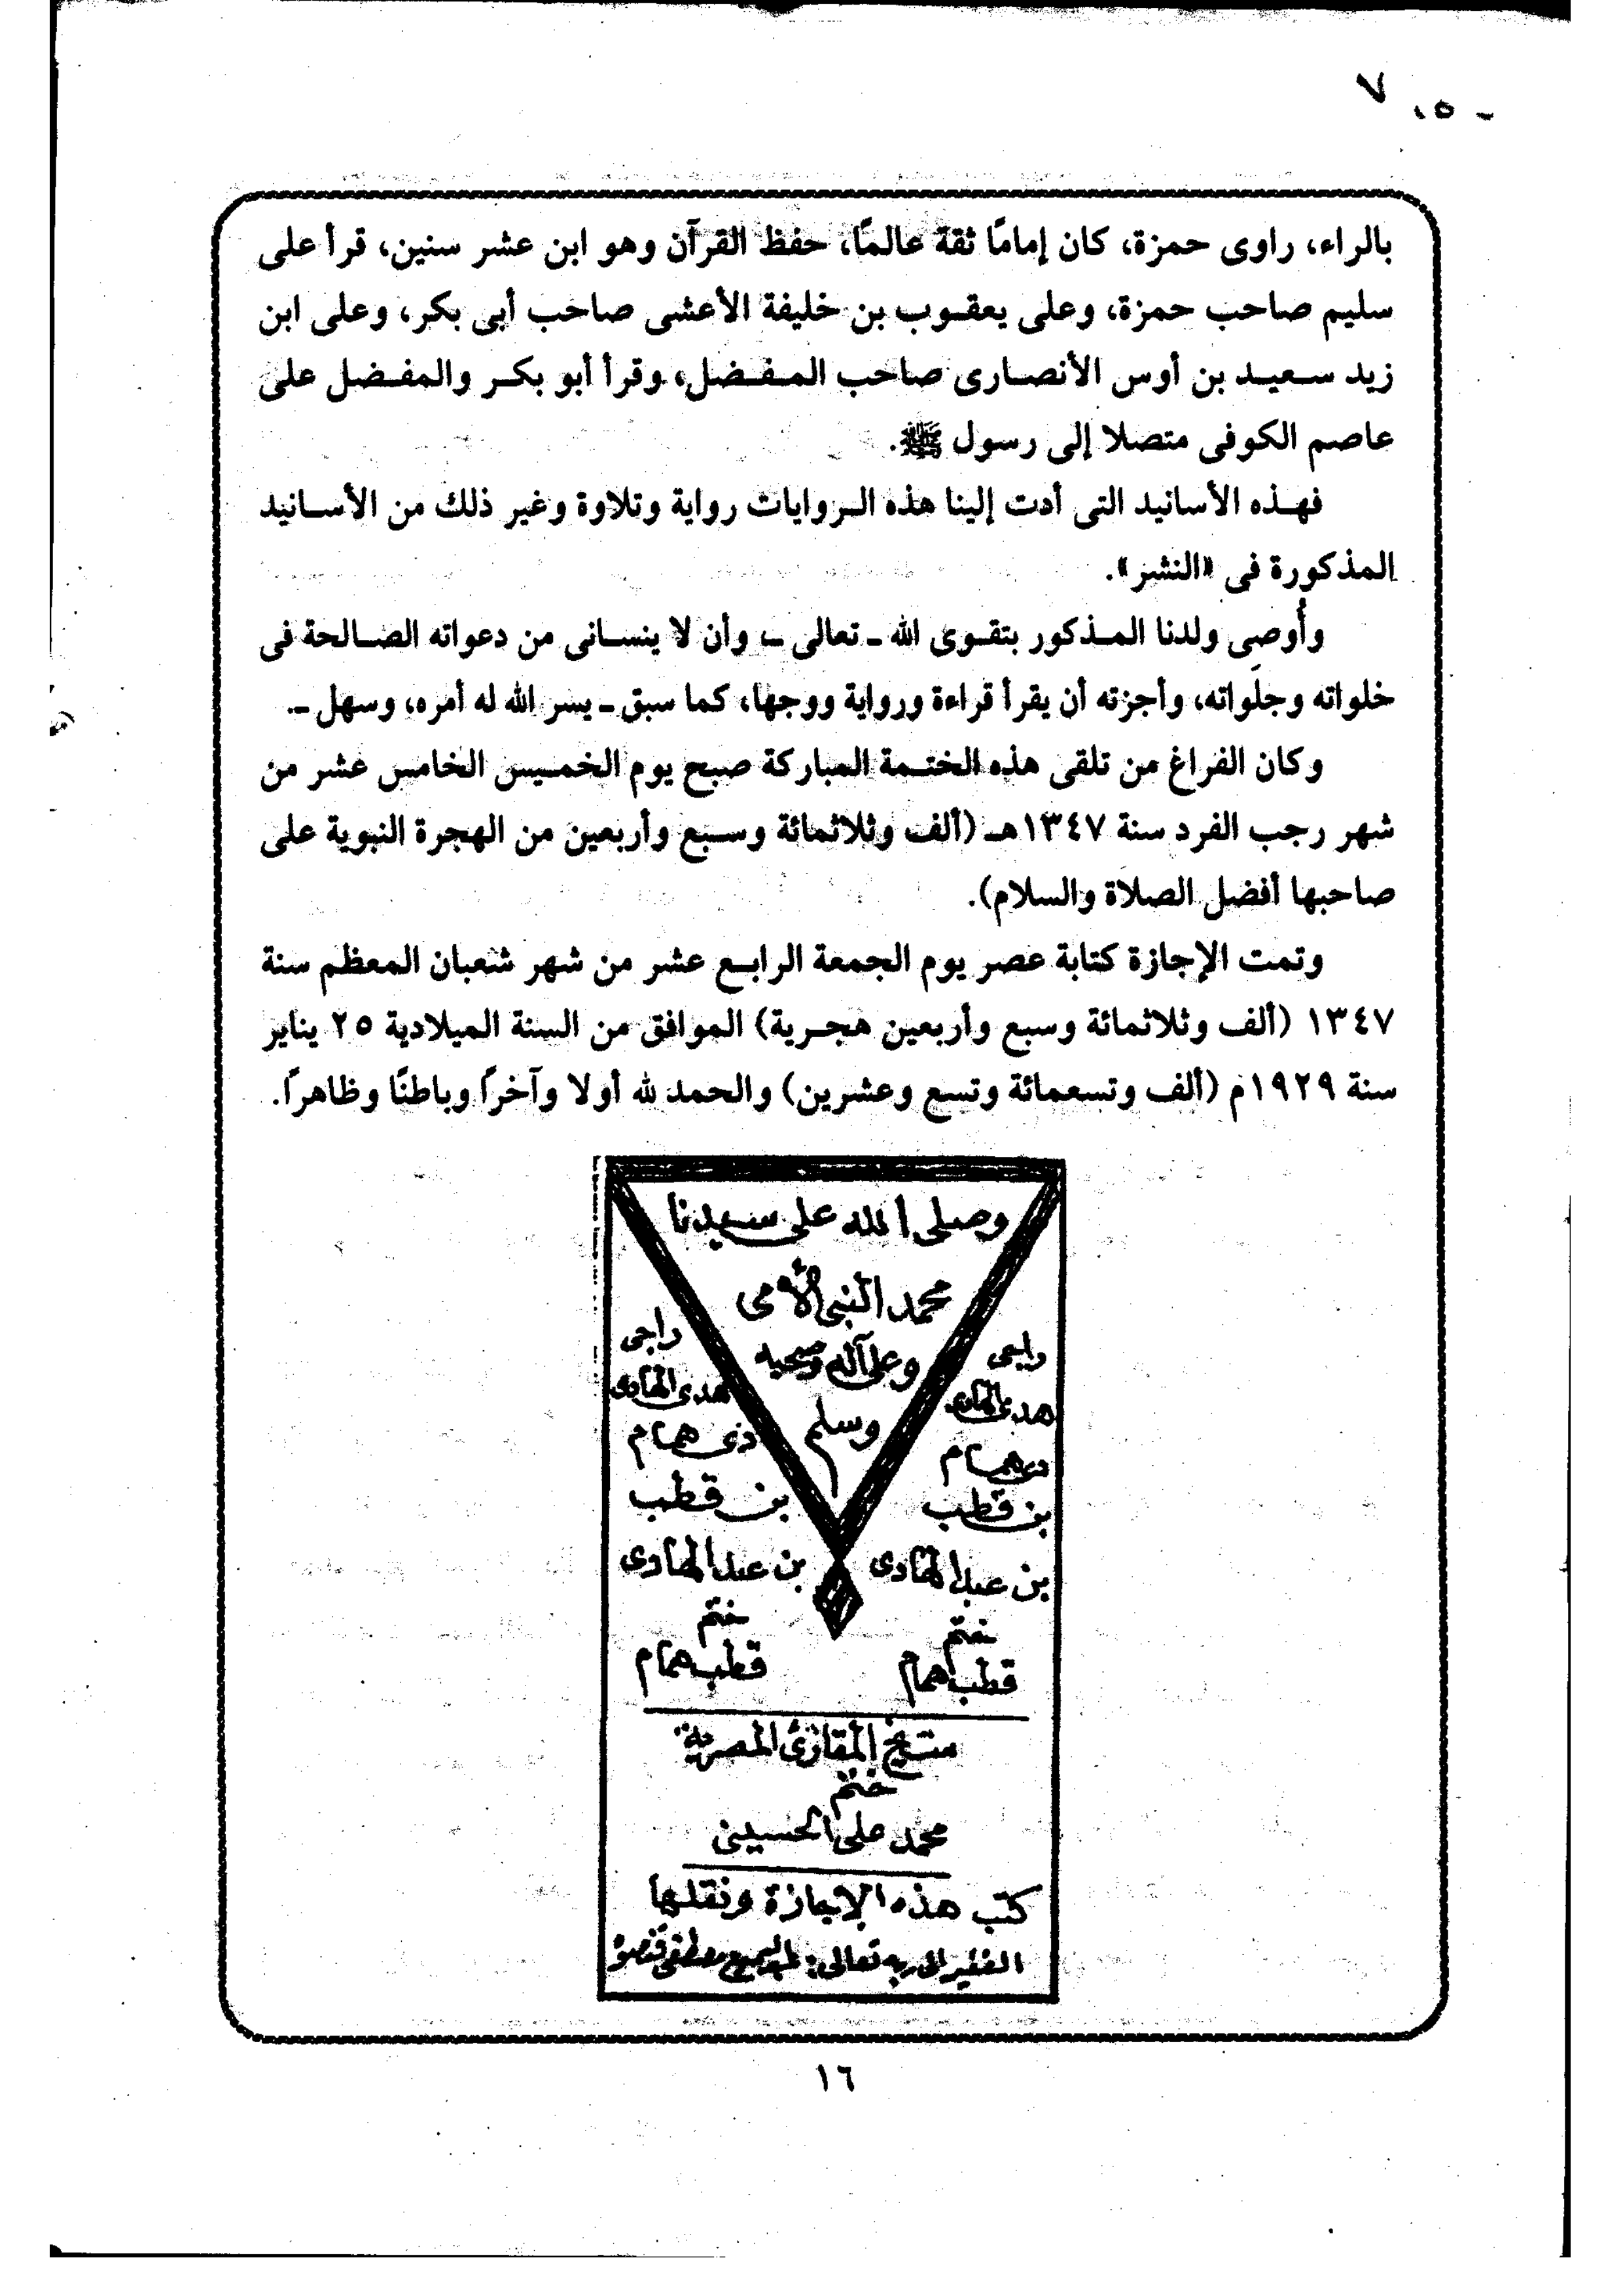 بالراء، راوى حمزة، كان إمامًا ثقة عالمًا، حفظ القرآن وهو ابن عشر سنين، قرأ على
سليم صاحب حمزة، وعلى يعقوب بن خليفة الأعشى صاحب أبى بكر، وعلى ابن
زيد سعيد بن أوس الأنصارى صاحب المفضل، وقرأ أبو بكر والمفضل على
عاصم الكوفى متصلا إلى رسول ﷺ.
فهذه الأسانيد التى أدت إلينا هذه الروايات رواية وتلاوة وغير ذلك من الأسانيد
المذكورة فى «النشر».
وأُوصِى ولدنا المذكور بتقوى الله ـ تعالى ـ، وأن لا ينسانى من دعواته الصالحة فى
خلواته وجلَواته، وأجزته أن يقرأ قراءة ورواية ووجها، كما سبق ـ يسر الله له أمره، وسهل ـ.
وكان الفراغ من تلقى هذه الختمة المباركة صبح يوم الخميس الخامس عشر من
شهر رجب الفرد سنة ١٣٤٧هـ (ألف وثلاثمائة وسبع وأربعين من الهجرة النبوية على
صاحبها أفضل الصلاة والسلام).
وتمت الإجازة كتابة عصر يوم الجمعة الرابع عشر من شهر شعبان المعظم سنة
١٣٤٧ (ألف وثلاثمائة وسبع وأربعين هجرية) الموافق من السنة الميلادية ٢٥ يناير
سنة ١٩٢٩م (ألف وتسعمائة وتسع وعشرين) والحمد لله أولا وآخرًا وباطنًا وظاهرًا.
وصلى الله على سيدنا
محمد النبى الأمى
وعلى آله وصحبه
وسلم
راجى
هدى الهادى
ذى همام
بن قطب
بن عبد الهادى
ختم
قطب همام
راجى
هدى الهادى
ذى همام
بن قطب
بن عبد الهادى
ختم
قطب همام
شيخ المقارئ المصرية
ختم
محمد على الحسينى
كتب هذه الإجازة ونقلها
الفقير إلى ربه تعالى: مصطفى قنصوه
١٦